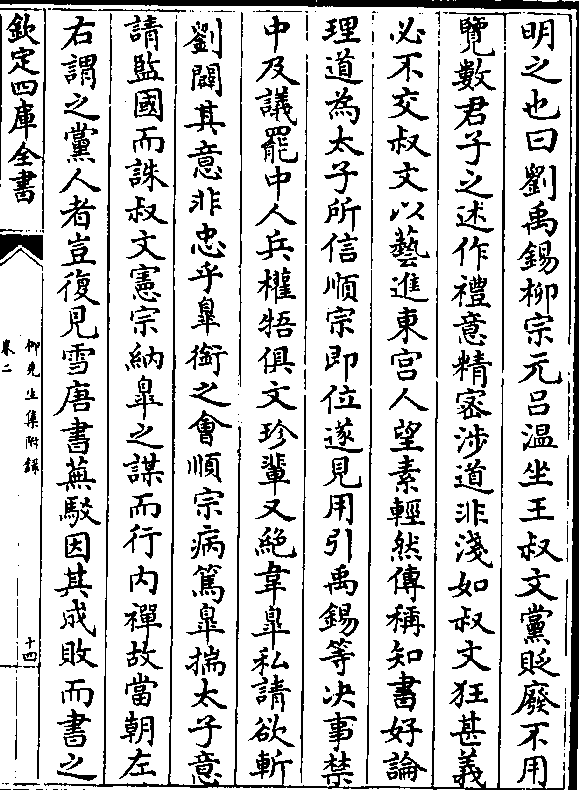 明之也曰劉禹錫栁宗元吕温坐王叔文黨貶廢不用
覽數君子之述作禮意精宻渉道非淺如叔文狂甚義
必不交叔文以藝進東宫人望素輕然傳稱知書好論
理道為太子所信順宗即位遂見用引禹錫等決事禁
中及議罷中人兵權牾俱文珍輩又絶韋臯私請欲斬
劉闢其意非忠乎臯銜之會順宗病篤臯揣太子意
請監國而誅叔文憲宗納臯之謀而行内禪故當朝左
右謂之黨人者豈復見雪唐書蕪駁因其成敗而書之
欽定四庫全書
栁先生集附録
卷二
十四